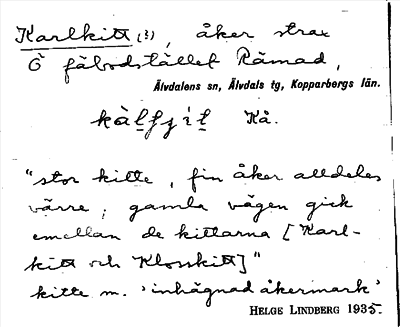 Karlkitt (?), åker strax
Ö fäbodstället Råmad,
Älvdalens sn, Älvdals tg, Kopparbergs län.
Kå.
"stor kitte, fin åker alldeles
värre, gamla vägen gick
emellan de kittarna [Karl-
kitt och Klosskitt]"
kitte m. 'inhägnad åkermark'
HELGE LINDBERG 1935.